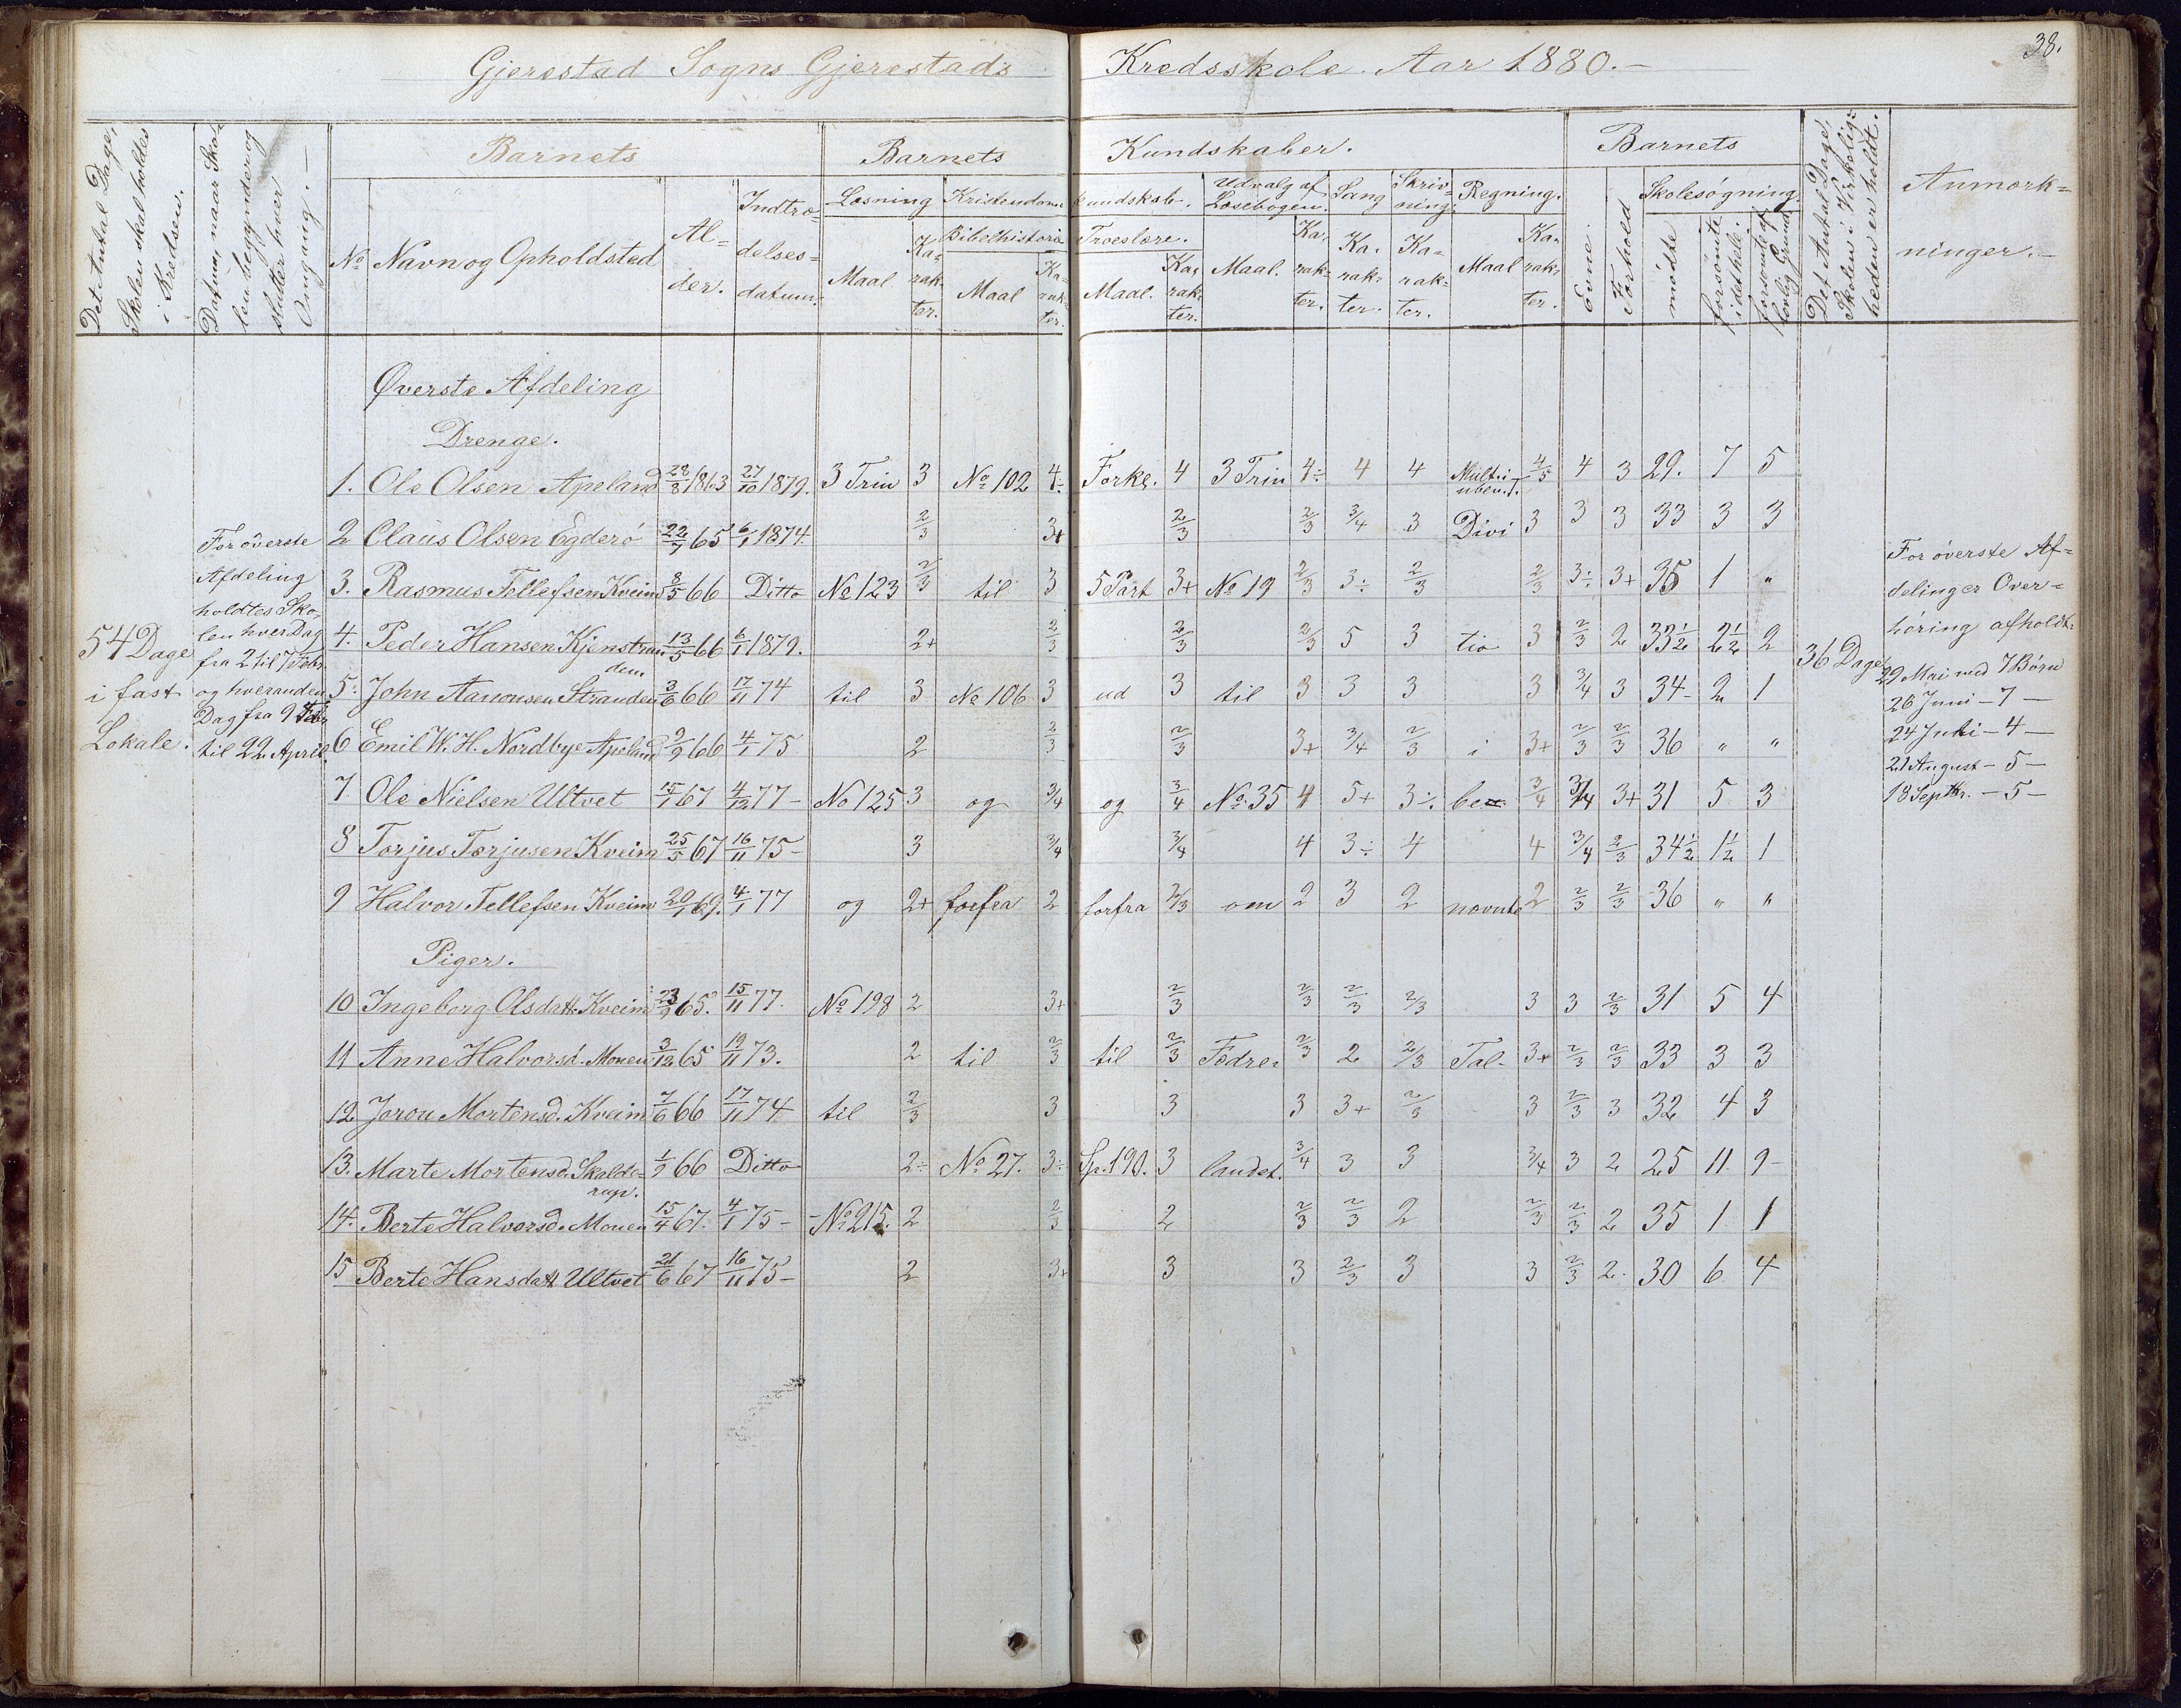 38.
Gjerestad Sogns Gjerestads Kredsskole. Aar 1880.-
Det Antal Dage, Skolen skal holdes i Kredsen.
Datum, naar Skolen begynder og slutter hver Omgang.-
Barnets
Barnets Kundskaber.
Barnets
Det Antal Dage, Skolen i Virkelig-heden er holdt.
Anmærk-
ninger.-
No Navn og Opholdsted
Al-
der.
Indtræ-
delses-
datum.
Læsning
Maal. Ka-rak-ter.
Kristendoms kundskab.
Bibelhistorie
Maal Ka-rak-ter.
Troeslære.
Maal. Ka-rak-ter.
Udvalg af Læsebogen.
Maal. Ka-rak-ter.
Sang
Ka-rak-ter.
Skriv-ning.
Ka-rak-ter.
Regning.
Maal Ka-rak-ter.
Evne.
Forhold
Skolesøgning.
mødte
forsømte i det hele.
forsømte af lovlig Grund
Øverste Afdeling
Drenge.
1. Ole Olsen Apeland 28/8 1863 27/10 1879. 3 Trin 3 No 102 4÷ Forkl. 4 3 Trin 4÷ 4 4 Multi i uben.T. 4/5 4 3 29. 7 5
2 Claus Olsen Egderö 22/7 65 6/1 1874. 2/3 3+ 2/3 2/3 3/4 3 Divi 3 3 3 33 3 3
3. Rasmus Tellefsen Kveim 8/5 66 Ditto No 123 2/3 til 3 5 Part 3+ No 19 2/3 3÷ 2/3 2/3 3÷ 3+ 35 1 "
4. Peder Hansen Kjenstrandem 13/5 66 6/1 1879. 2+ 2/3 2/3 2/3 5 3 tio 3 2/3 2 33½ 2½ 2
5. John Aanonsen Stranden 3/6 66 17/11 74 til 3 No 106 3 ud 3 til 3 3 3 3 3/4 3 34- 2 1
6 Emil W. H. Nordbye Apeland 9/9 66 4/1 75 2 2/3 2/3 3+ 3/4 2/3 i 3+ 2/3 2/3 36 " "
7 Ole Nielsen Ultvet 15/1 67 4/12 77- No 125 3 og 3/4 og 3/4 No 35 4 5+ 3÷ be= 3/4 3/4 3+ 31 5 3
8 Torjus Torjusen Kveim 25/5 67 16/11 75- 3 3/4 3/4 4 3÷ 4 4 3/4 2/3 34½ 1½ 1
9 Halvor Tellefsen Kveim 20/1 69. 4/1 77 og 2+ forfra 2 forfra 2/3 om 2 3 2 nævnte 2 2/3 2/3 36 " "
Piger.
10 Ingeborg Olsdatt. Kveim 23/9 65. 15/11 77. No 198 2 3+ 2/3 2/3 2/3 2/3 3 3 2/3 31 5 4
11 Anne Halvorsd. Moen 3/12 65 19/11 73. 2 til 2/3 til 2/3 Fædre- 2/3 2 2/3 Tal- 3+ 2/3 2/3 33 3 3
12. Joron Mortensd. Kveim 7/6 66 17/11 74 til 2/3 3 3 3 3+ 2/3 3 2/3 3 32 4 3
13. Marte Mortensd. Skolderup. 1/9 66 Ditto 2÷ No 27. 3÷ Sp.190. 3 landet. 3/4 3 3 3/4 3 2 25 11 9-
14. Berte Halvorsd. Moen 15/4 67. 4/1 75- No 215. 2 2/3 2 2/3 2/3 2 2/3 2/3 2 35 1 1
15 Berte Hansdatt Ultvet 21/6 67 16/11 75- 2 3+ 3 3 2/3 3 3 2/3 2. 30 6 4
54 Dage
i fast
Lokale.
For øverste
Afdeling
holdtes Sko-
len hver Dag
fra 2 til 7 Febr.
og hveranden
Dag fra 9 Febr
til 22 April.
36 Dage
For øverste Af-
delinger Over-
høring afholdt:
29 Mai med 7 Børn
26 Juni - 7 -
24 Juli - 4 -
21 August - 5 -
18 Septbr. - 5 -